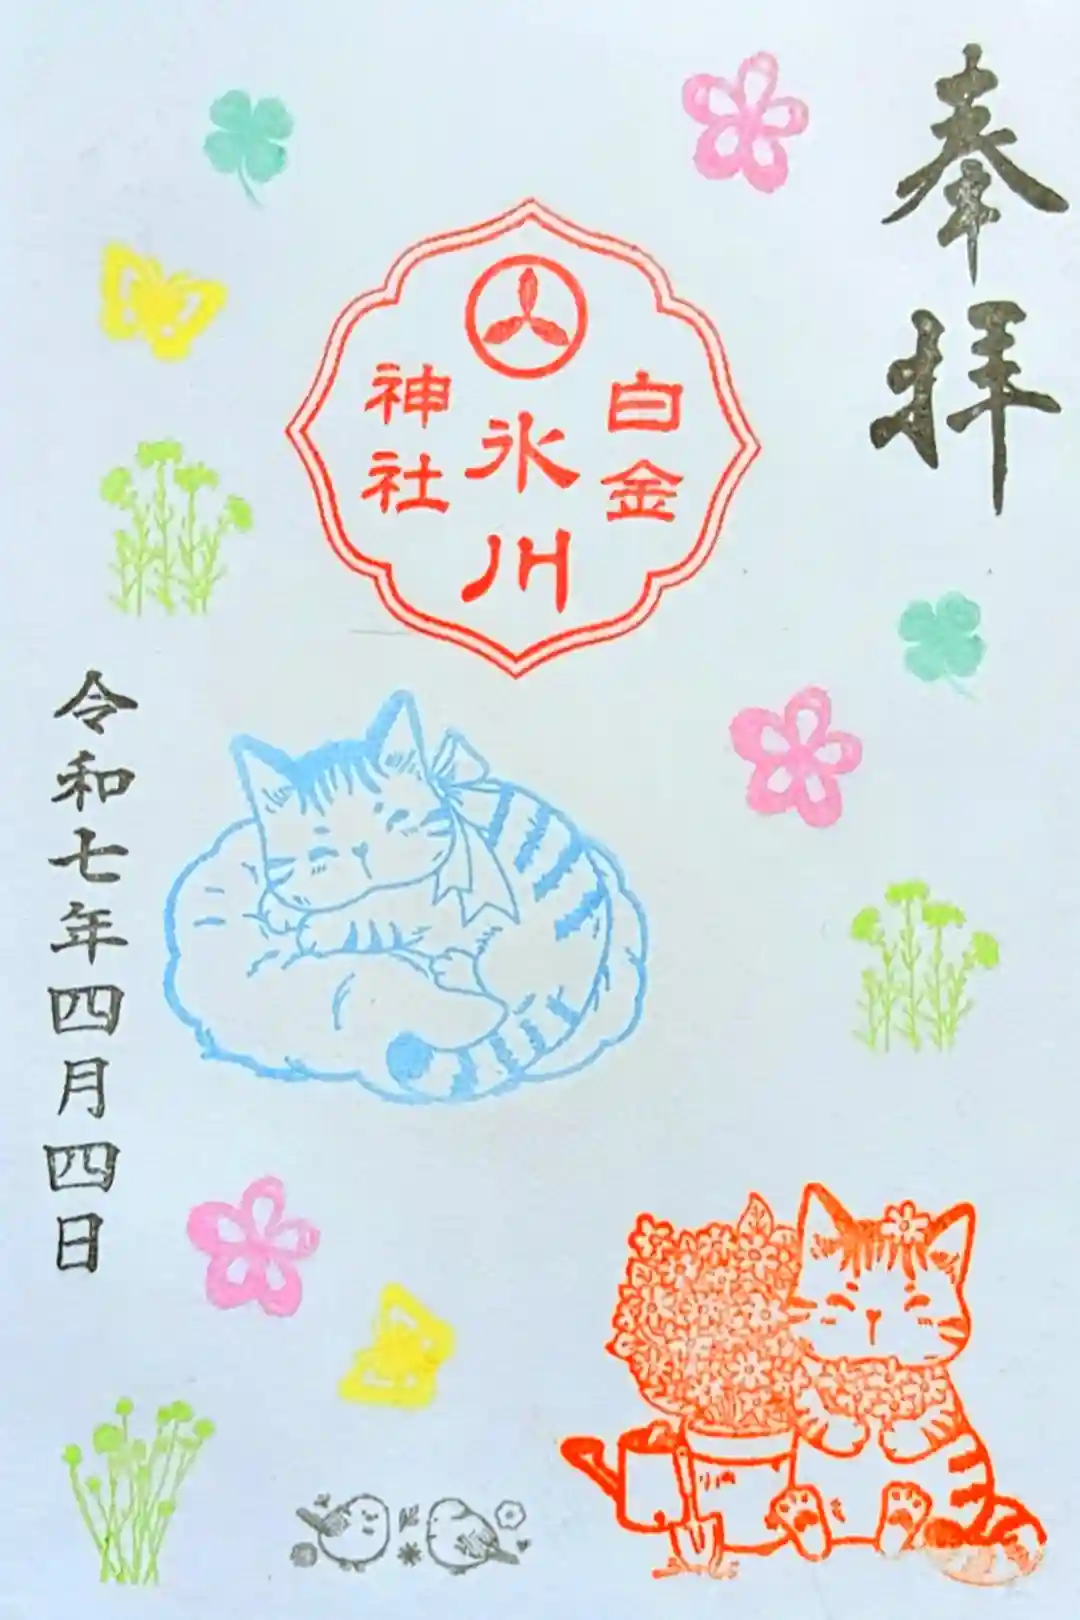 奉拝
白金
氷川
神社
令和七年四月四日